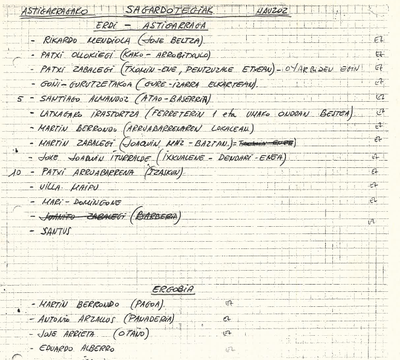 ASTIGARRAGAKO SAGARDOTEGIAK
ERDI - ASTIGARRAGA
- RIKARDO MENDIOLA (JOSE BELTZA). EZ
- PATXI OLLOKIEGI (KAKO - ARROBITXULO) EZ
- PATXI ZABALEGI (TXOMIN-ENE, PENTZUZALE ETXEAN) - OYARBIDEN EGIN EZ
- GOÑI-GURUTZETAKOA (GURE-IZARRA ELKARTEAN). EZ
5 - SANTIAGO ALMANDOZ (ATAO-BASERRIA) EZ
- LATXAGAKO IRASTORTZA (FERRETERIN 1 eta UMAKO ONDOAN BESTEA). EZ
- MARTIN BERRONDO (ARRUABARRENAREN LOKALEAN) EZ
- MARTIN ZABALEGI (JOAQUIN MNZ - BAZTAN) EZ
- JOXE JOAQUIN ITURRALDE (IXKULENE - DENDARI-ENEA) EZ
10 - PATXI ARRUABARRENA (ITZASKUN) EZ
- VILLA MAIPU EZ
- MARI-DOMINGONE EZ
- JOANITO ZABALEGI (BARBERIA) EZ
- SANTUS
ERGOBIA
- MARTIN BERRONDO (PAGOA). EZ
- ANTONIO ARZALLUS (PANADERIA) EZ
- JOSE ARRIETA (OTAÑO) EZ
- EDUARDO ALBERRO EZ